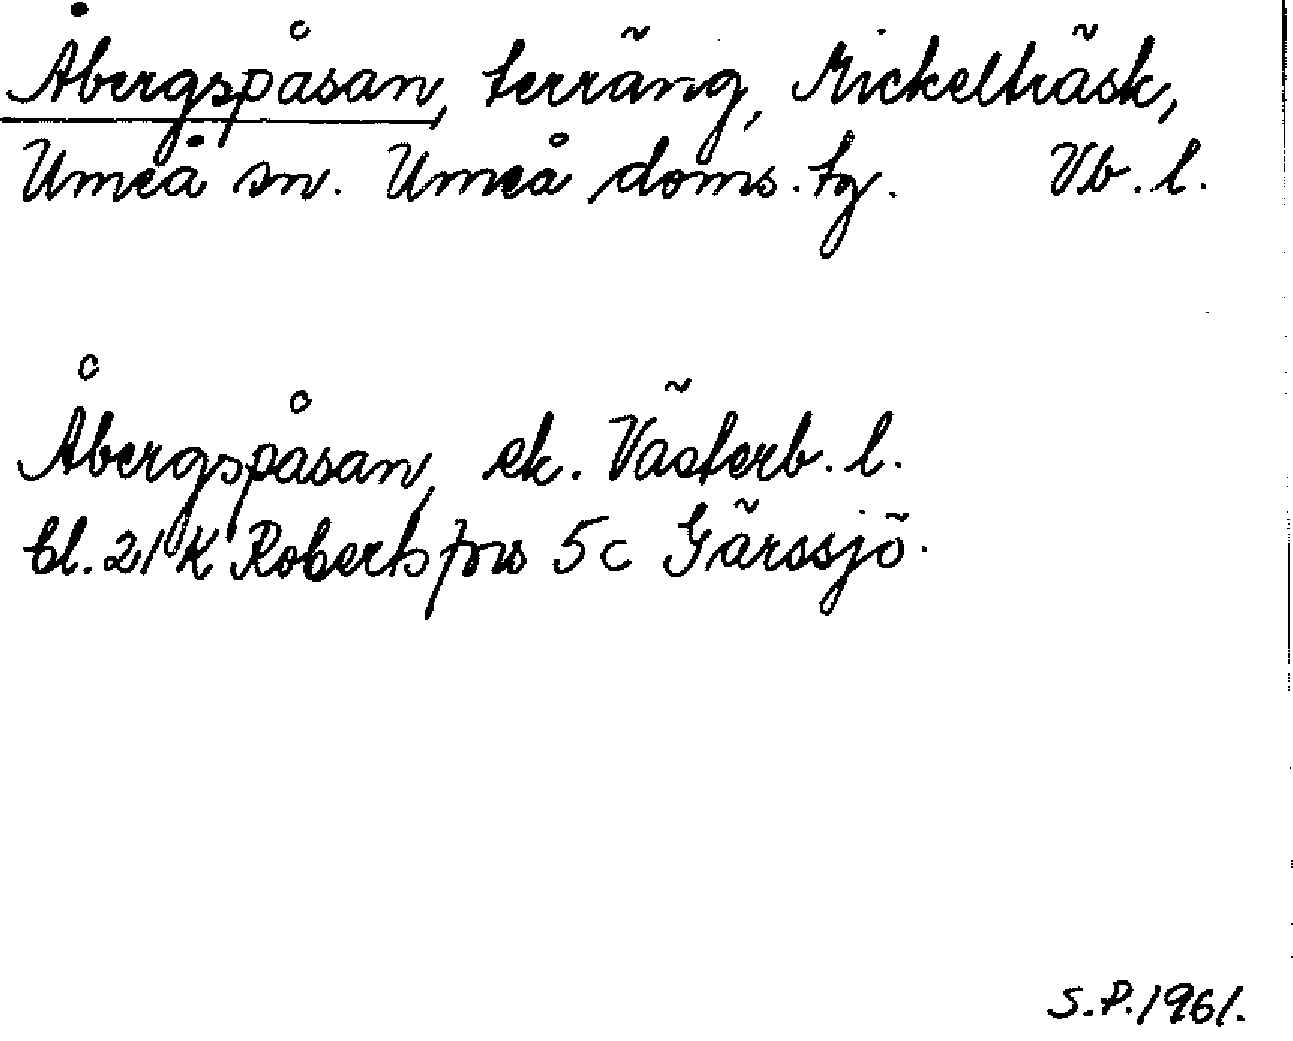 Åbergspåsan, terräng, Mickelträsk,
Umeå sn. Umeå doms. tg. Vb. l.
Åbergspåsan, ek. Västerb. l.
bl. 21 K Robertsfors 5c Gärssjö.
S.P. 1961.